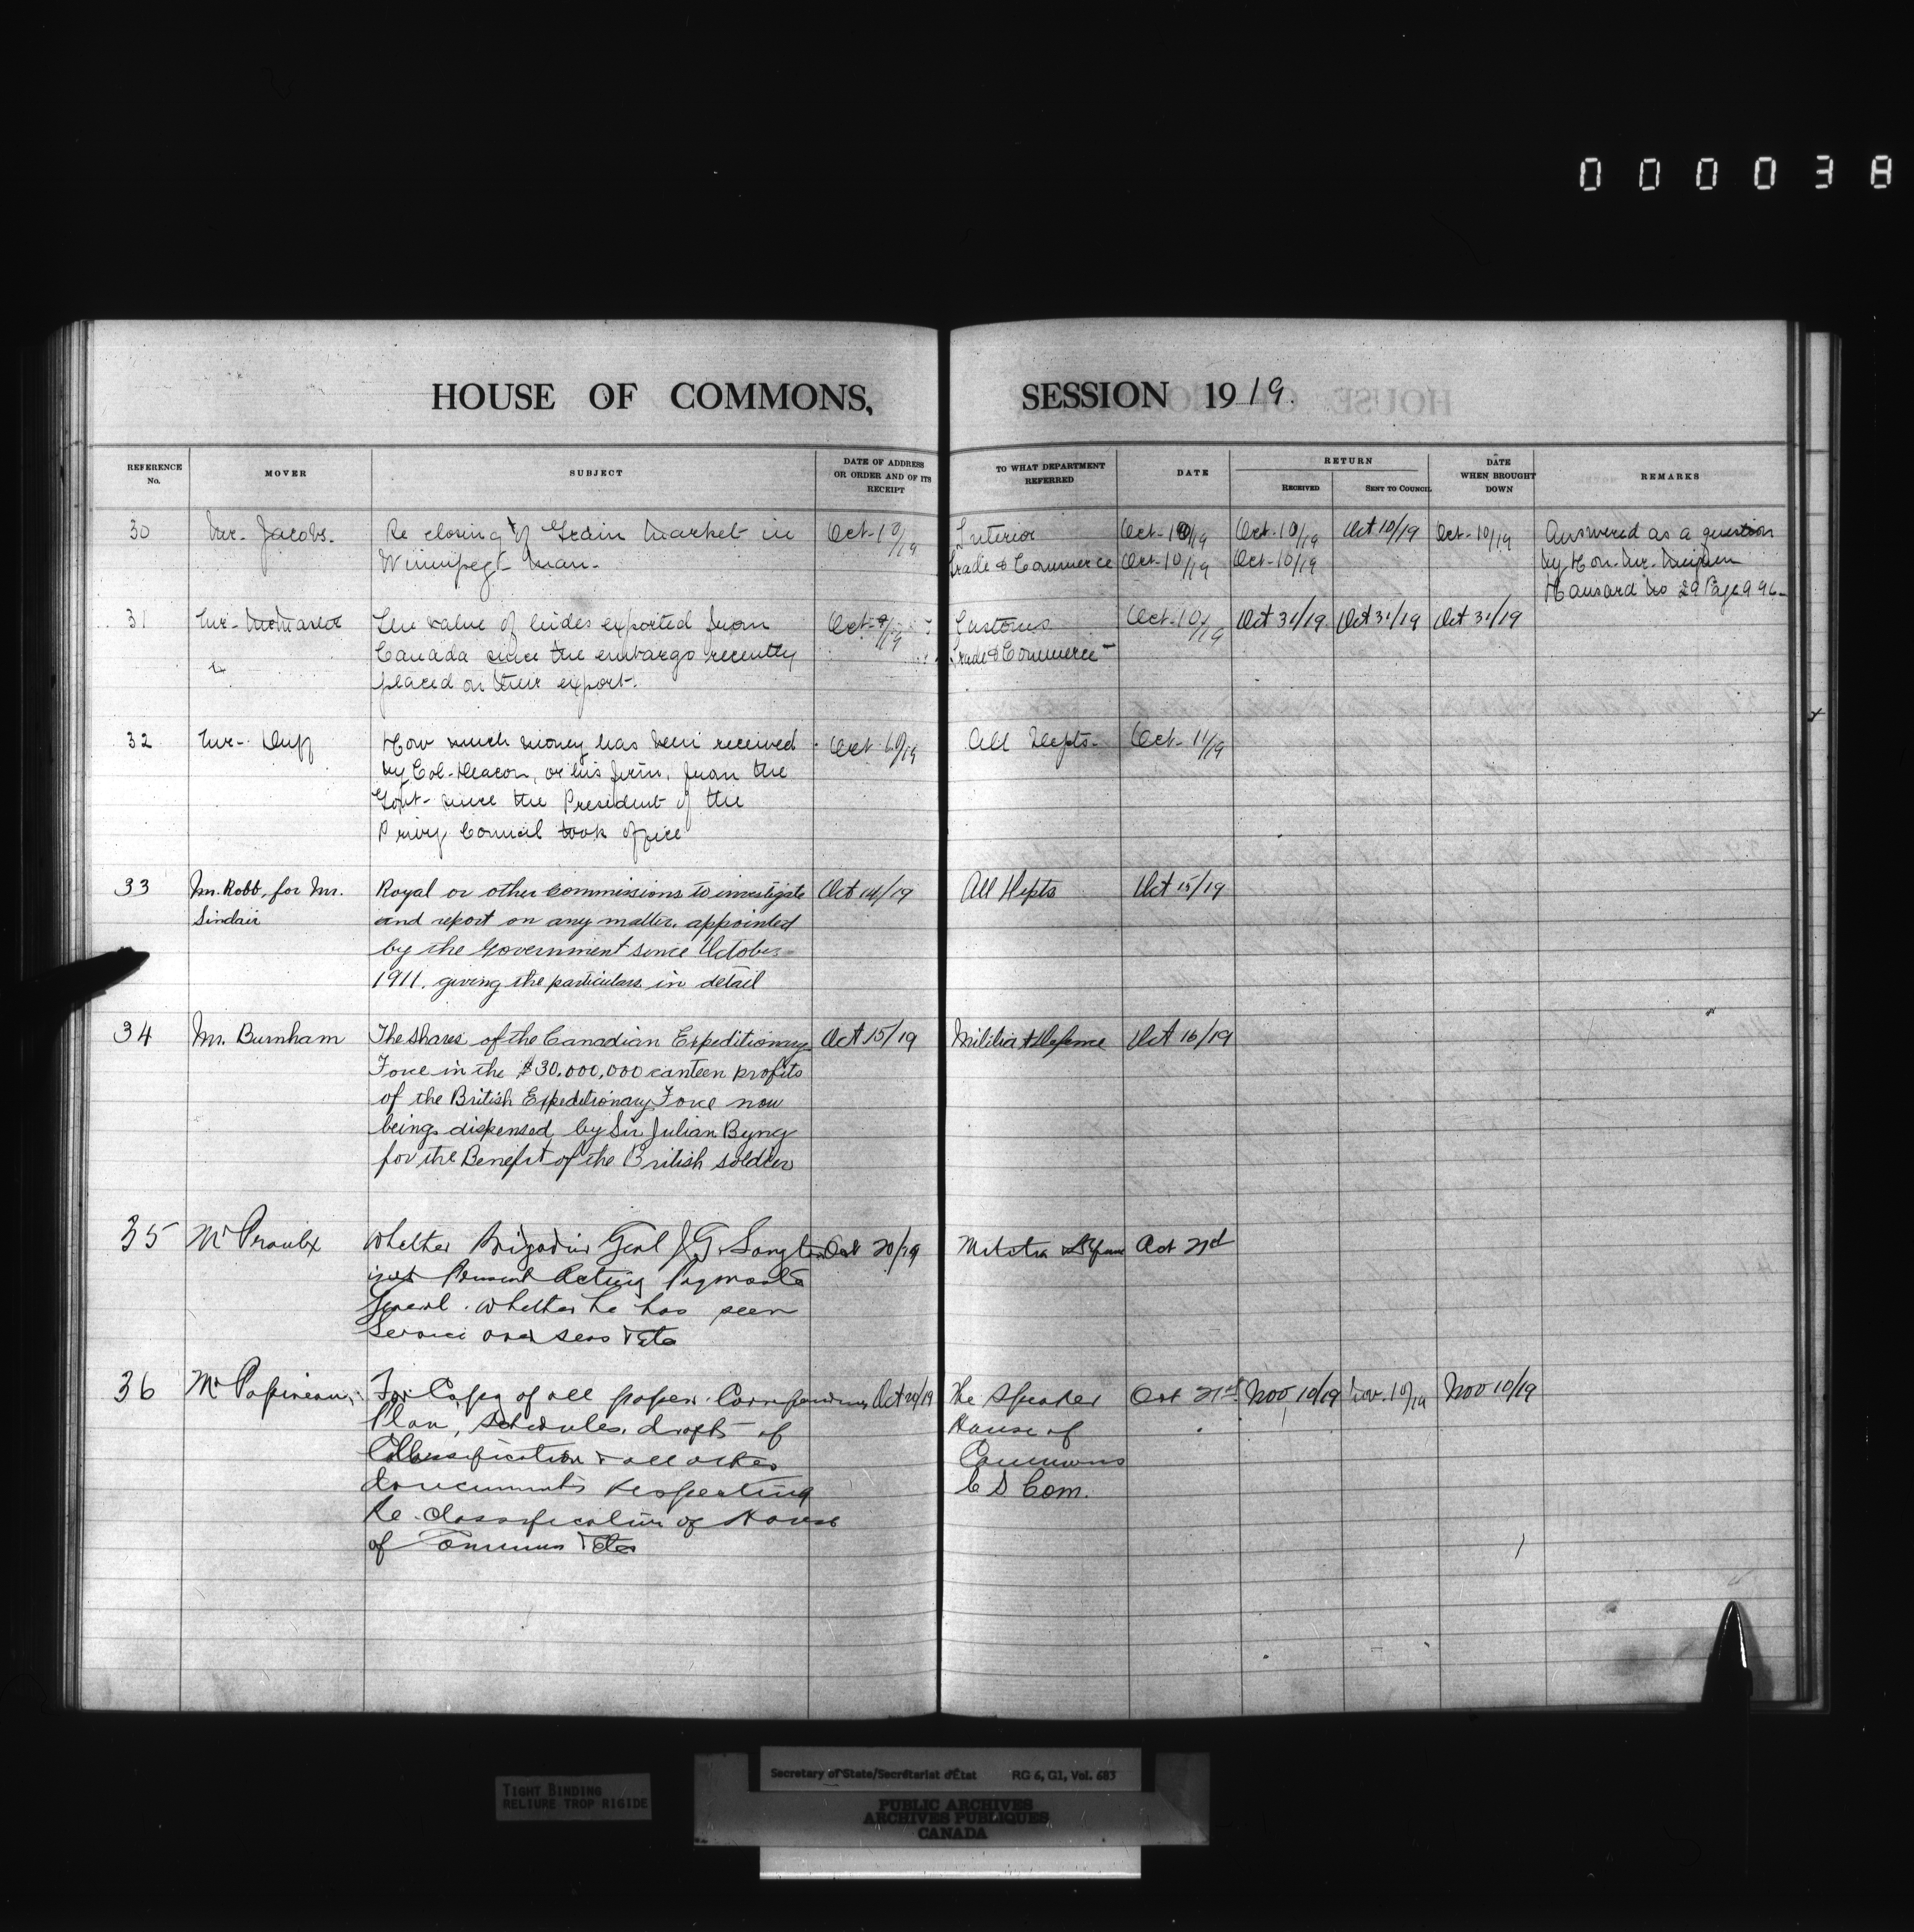 000038
HOUSE OF COMMONS, SESSION 1919.
REFERENCE No.
MOVER
SUBJECT
DATE OF ADDRESS OR ORDER AND OF ITS RECEIPT
TO WHAT DEPARTMENT REFERRED
DATE
RETURN
RECEIVED
SENT TO COUNCIL
DATE WHEN BROUGHT DOWN
REMARKS
30 Mr. Jacobs. Re closing of Grain Market in Oct-10/19 Interior Oct-10/19 Oct-10/19 Oct 10/19 Oct-10/19 Answered as a question
Winnipeg Man. Trade & Commerce Oct-10/19 Oct-10/19 by Hon. Mr. Meighen
Hansard No 29 Page 996
31 Mr. The value of hides exported from Oct-9/19 Customs Oct-10/19 Oct 31/19 Oct 31/19 Oct 31/19
Canada since the embargo recently Trade & Commerce
placed on their export.
32 Mr. Duff How much money has been received Oct 10/19 All Depts. Oct-11/19
by Col-Deacon, or his firm, from the
Govt- since the President of the
Privy Council took office
33 Mr. Robb, for Mr. Royal or other Commissions to investigate Oct 14/19 All Depts Oct 15/19
Sinclair and report on any matter, appointed
by the Government since October
1911, giving the particulars in detail
34 Mr. Burnham The shares of the Canadian Expeditionary Oct 15/19 Militia & Defence Oct 16/19
Force in the $30,000,000 canteen profits
of the British Expeditionary Force now
being dispensed by Sir Julian Byng
for the Benefit of the British soldier
35 Mr Proulx Whether Brigadier Genl J G. Langton Oct 20/19 Militia & Defence Oct 21st
is at Present Acting Paymaster
General. Whether he has seen
Service over seas & Etc
36 Mr Papineau For Copy of all papers. Correspondence Oct 20/19 The Speaker Oct 21st Nov 10/19 Nov. 10/19 Nov 10/19
Plan, schedules, drafts of House of
Classification & all other Commons
documents respecting C S Com.
Re-classification of House
of Commons & Etc
TIGHT BINDING
RELIURE TROP RIGIDE
Secretary of State/Secrétariat d'État RG 6, G1, Vol. 683
PUBLIC ARCHIVES
ARCHIVES PUBLIQUES
CANADA